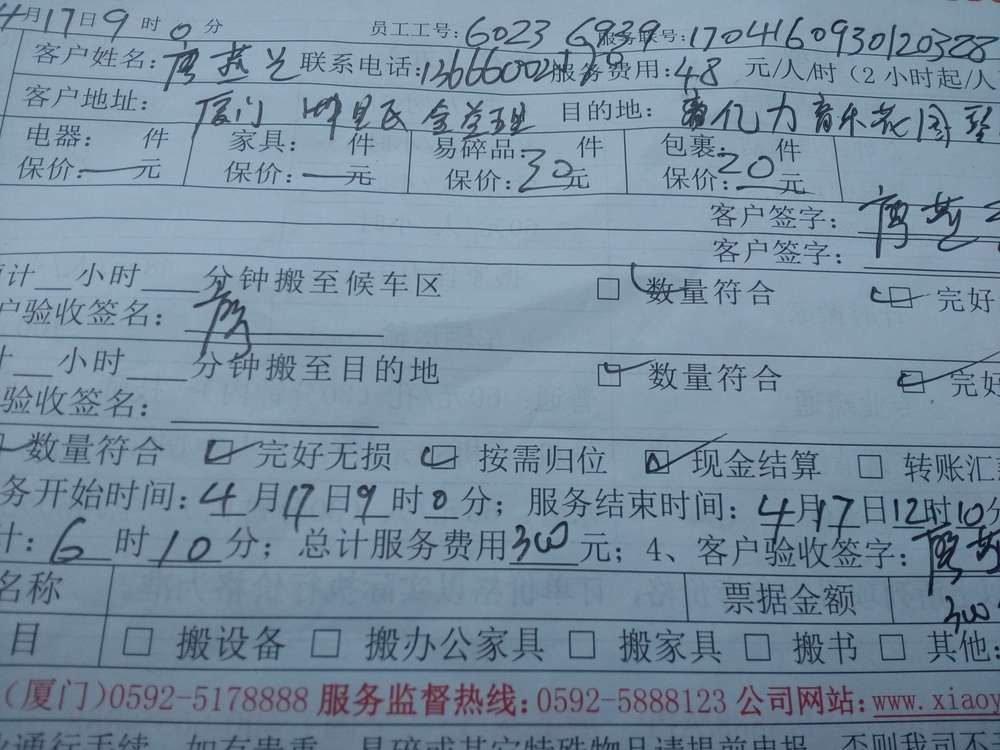 4月17日9时0分 员工工号:6023 6939 服务联号:1704160930120328
客户姓名: 联系电话: 服务费用:48 元/人/时(2小时起/人
客户地址: 厦门 目的地: 亿力音乐花园
电器: 件 家具: 件 易碎品: 件 包裹: 件
保价:—元 保价:—元 保价:30元 保价:20元
客户签字:
客户签字:
计__小时___分钟搬至候车区 □ 数量符合 □ 完好
户验收签名:
计__小时___分钟搬至目的地 □ 数量符合 □ 完好
验收签名:
数量符合 □ 完好无损 □ 按需归位 □ 现金结算 □ 转账汇
务开始时间:4月17日9时0分;服务结束时间:4月17日12时10分
计:6时10分;总计服务费用300元;4、客户验收签字:
名称 票据金额 300
目 □ 搬设备 □ 搬办公家具 □ 搬家具 □ 搬书 □ 其他:
(厦门)0592-5178888 服务监督热线:0592-5888123 公司网站:www.xiaoy
业通行手续,如有贵重、易碎或其它特殊物品请提前申报,否则我司不